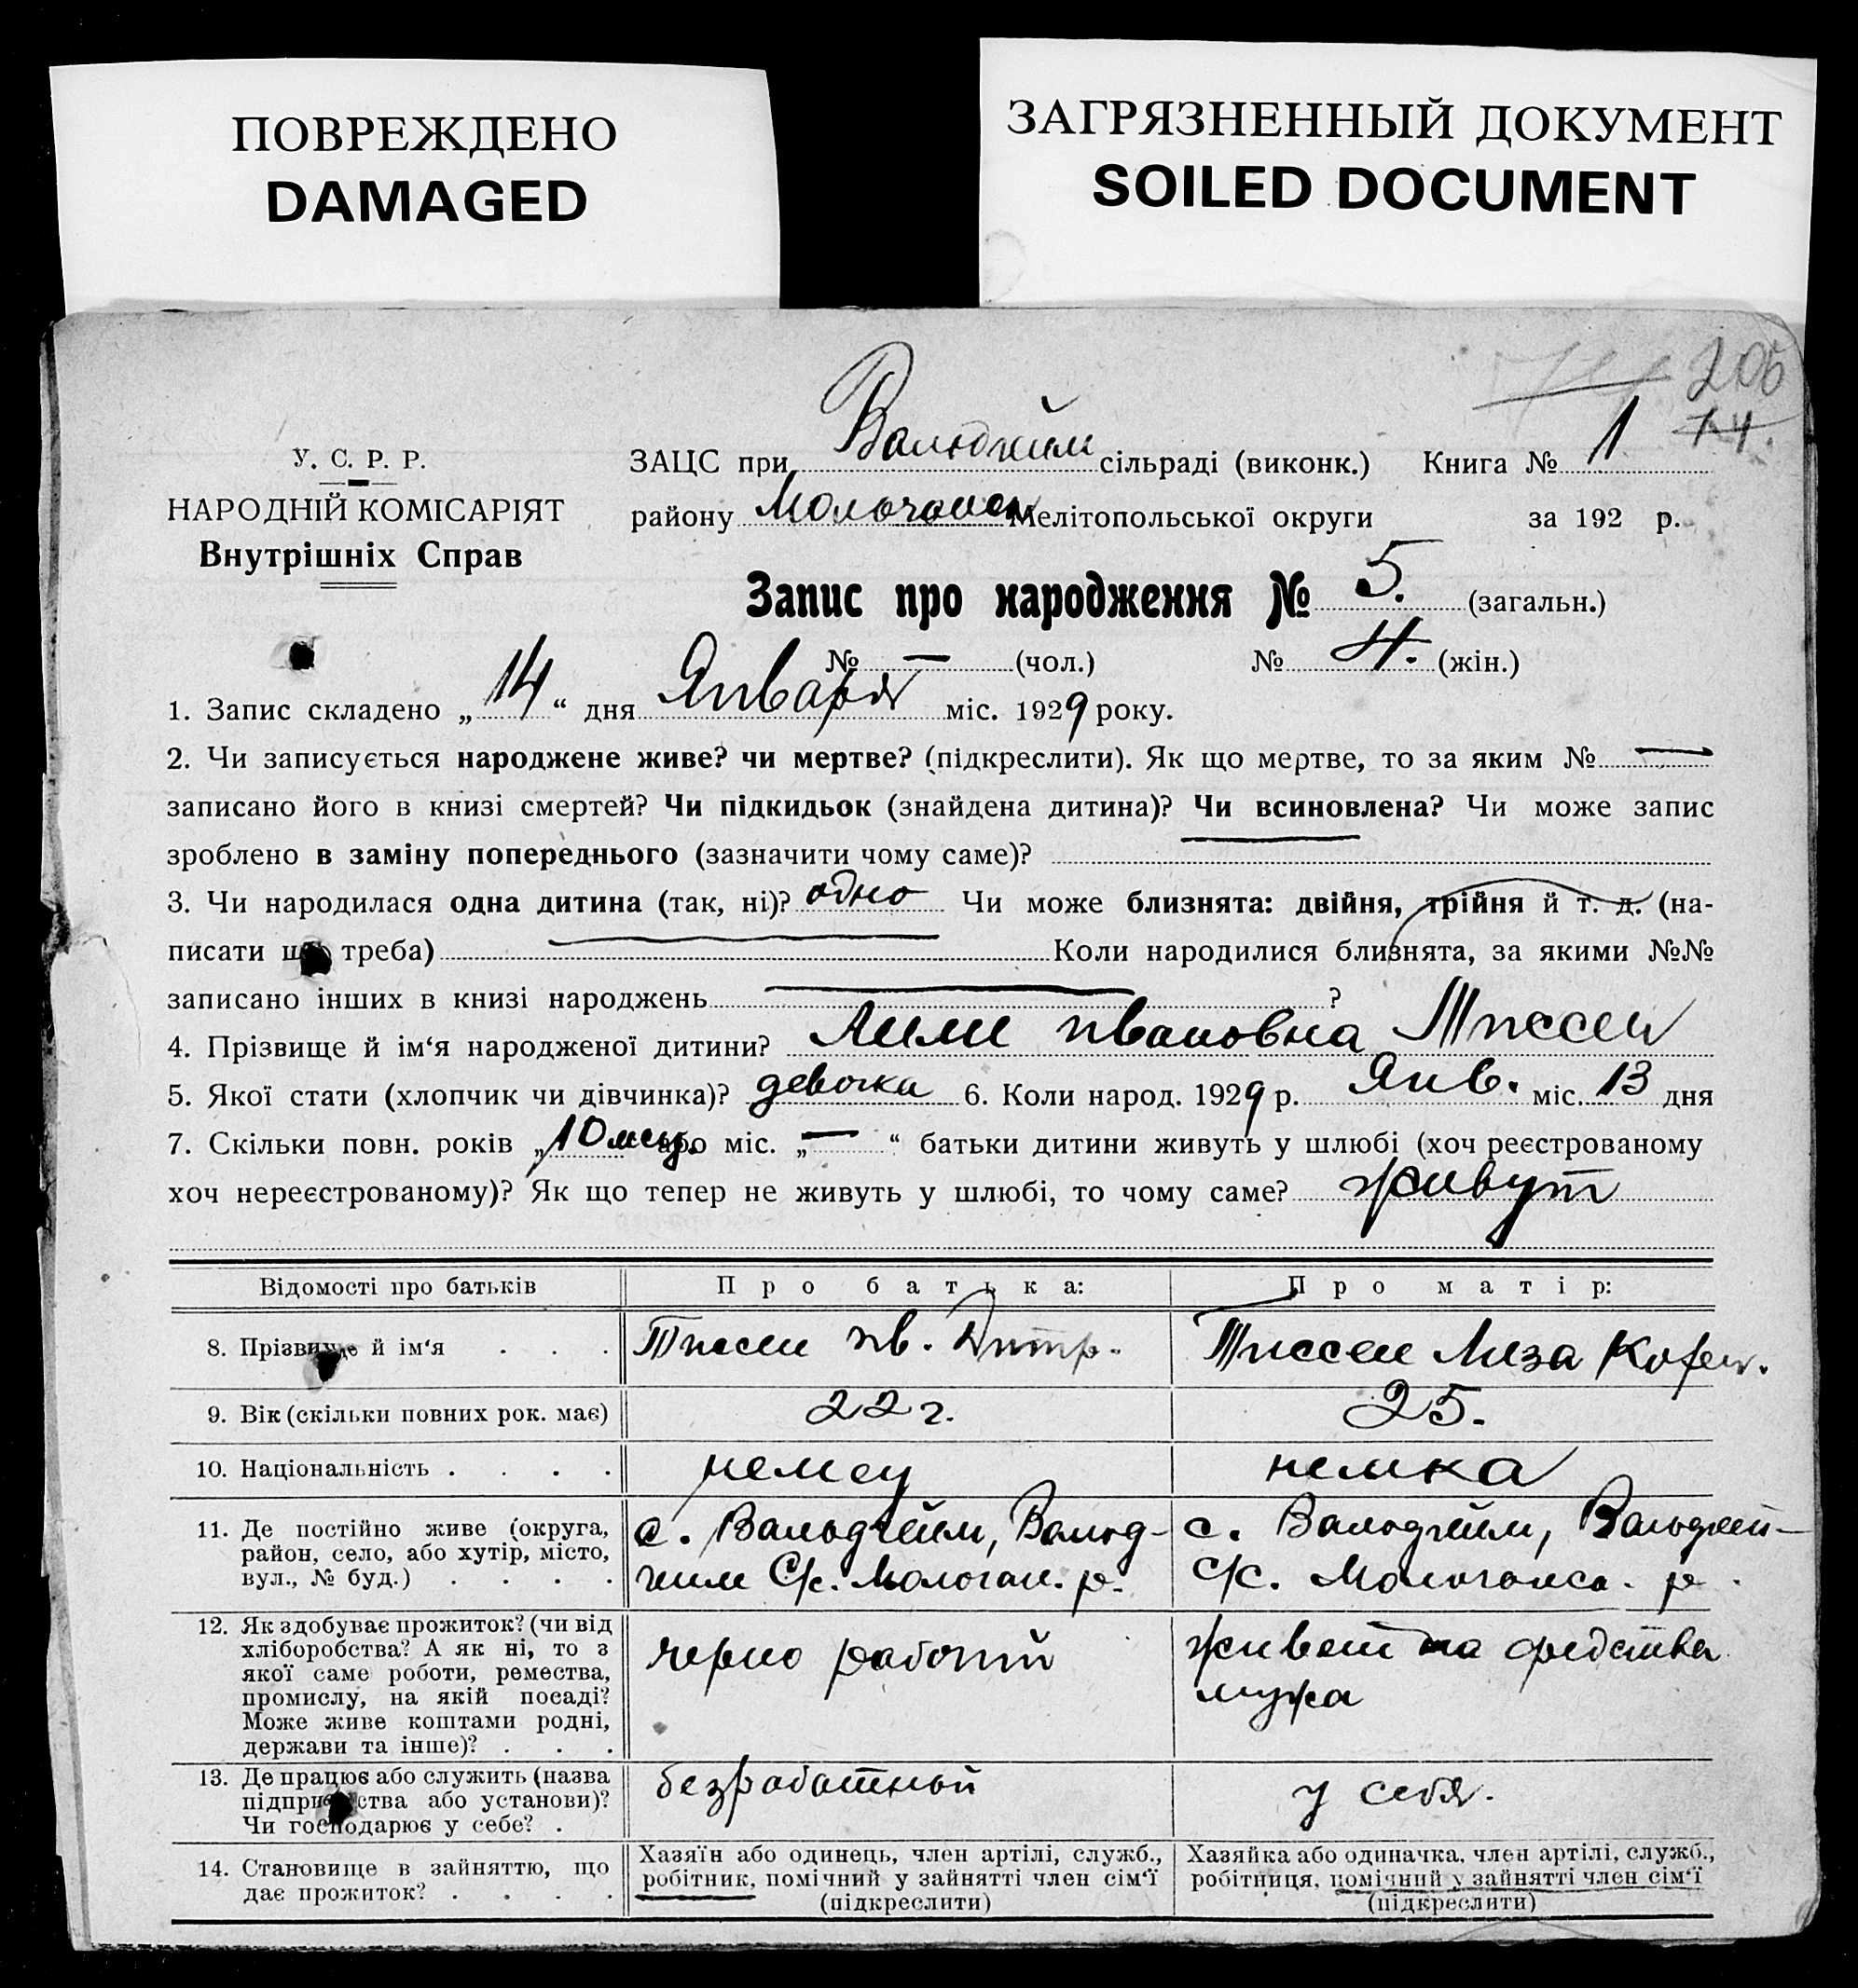 ПОВРЕЖДЕНО
DAMAGED
ЗАГРЯЗНЕННЫЙ ДОКУМЕНТ
SOILED DOCUMENT
206
74.
У. С. Р. Р.
НАРОДНІЙ КОМІСАРІЯТ
Внутрішніх Справ
ЗАЦС при Вальдгейм сільраді (виконк.) Книга № 1
району Молочанск Мелітопольської округи за 192 р.
Запис про народження № 5. (загальн.)
№ — (чол.) № 4. (жін.)
1. Запис складено „ 14 “ дня Января міс. 1929 року.
2. Чи записується народжене живе? чи мертве? (підкреслити). Як що мертве, то за яким № —
записано його в книзі смертей? Чи підкидьок (знайдена дитина)? Чи всиновлена? Чи може запис
зроблено в заміну попереднього (зазначити чому саме)?
3. Чи народилася одна дитина (так, ні)? одно Чи може близнята: двійня, трійня й т. д. (на-
писати що треба) Коли народилися близнята, за якими №№
записано інших в книзі народжень ?
4. Прізвище й ім‘я народженої дитини? Ивановна Тиссен
5. Якої стати (хлопчик чи дівчинка)? девочка 6. Коли народ. 1929 р. Янв. міс. 13 дня
7. Скільки повн. років „ 10 мец. або міс. „ — “ батьки дитини живуть у шлюбі (хоч реєстрованому
хоч нереєстрованому)? Як що тепер не живуть у шлюбі, то чому саме? живут
Відомості про батьків Про батька: Про матір:
8. Прізвище й ім‘я . . . Тиссен Ив. Дитр. Тиссен Лиза Корн.
9. Вік (скільки повних рок. має) 22 г. 25.
10. Національність . . . . немец немка
11. Де постійно живе (округа, район, село, або хутір, місто, вул., № буд.) . . . .
с. Вальдгейм, Вальд-
гейм С/с. Молочан. р.
с. Вальдгейм, Вальдгей-
С/с. Молочанск. р.
12. Як здобуває прожиток? (чи від
хліборобства? А як ні, то з
якої саме роботи, ремества,
промислу, на якій посаді?
Може живе коштами родні,
держави та інше)? . . .
черно рабочий
живет на средства
мужа
13. Де працює або служить (назва
підприємства або установи)?
Чи господарює у себе? .
безработный
у себя.
14. Становище в зайняттю, що
дає прожиток? . . . .
Хазяїн або одинець, член артілі, служб.,
робітник, помічний у зайнятті член сім‘ї
(підкреслити)
Хазяйка або одиначка, член артілі, служб.,
робітниця, помічний у зайнятті член сім‘ї
(підкреслити)